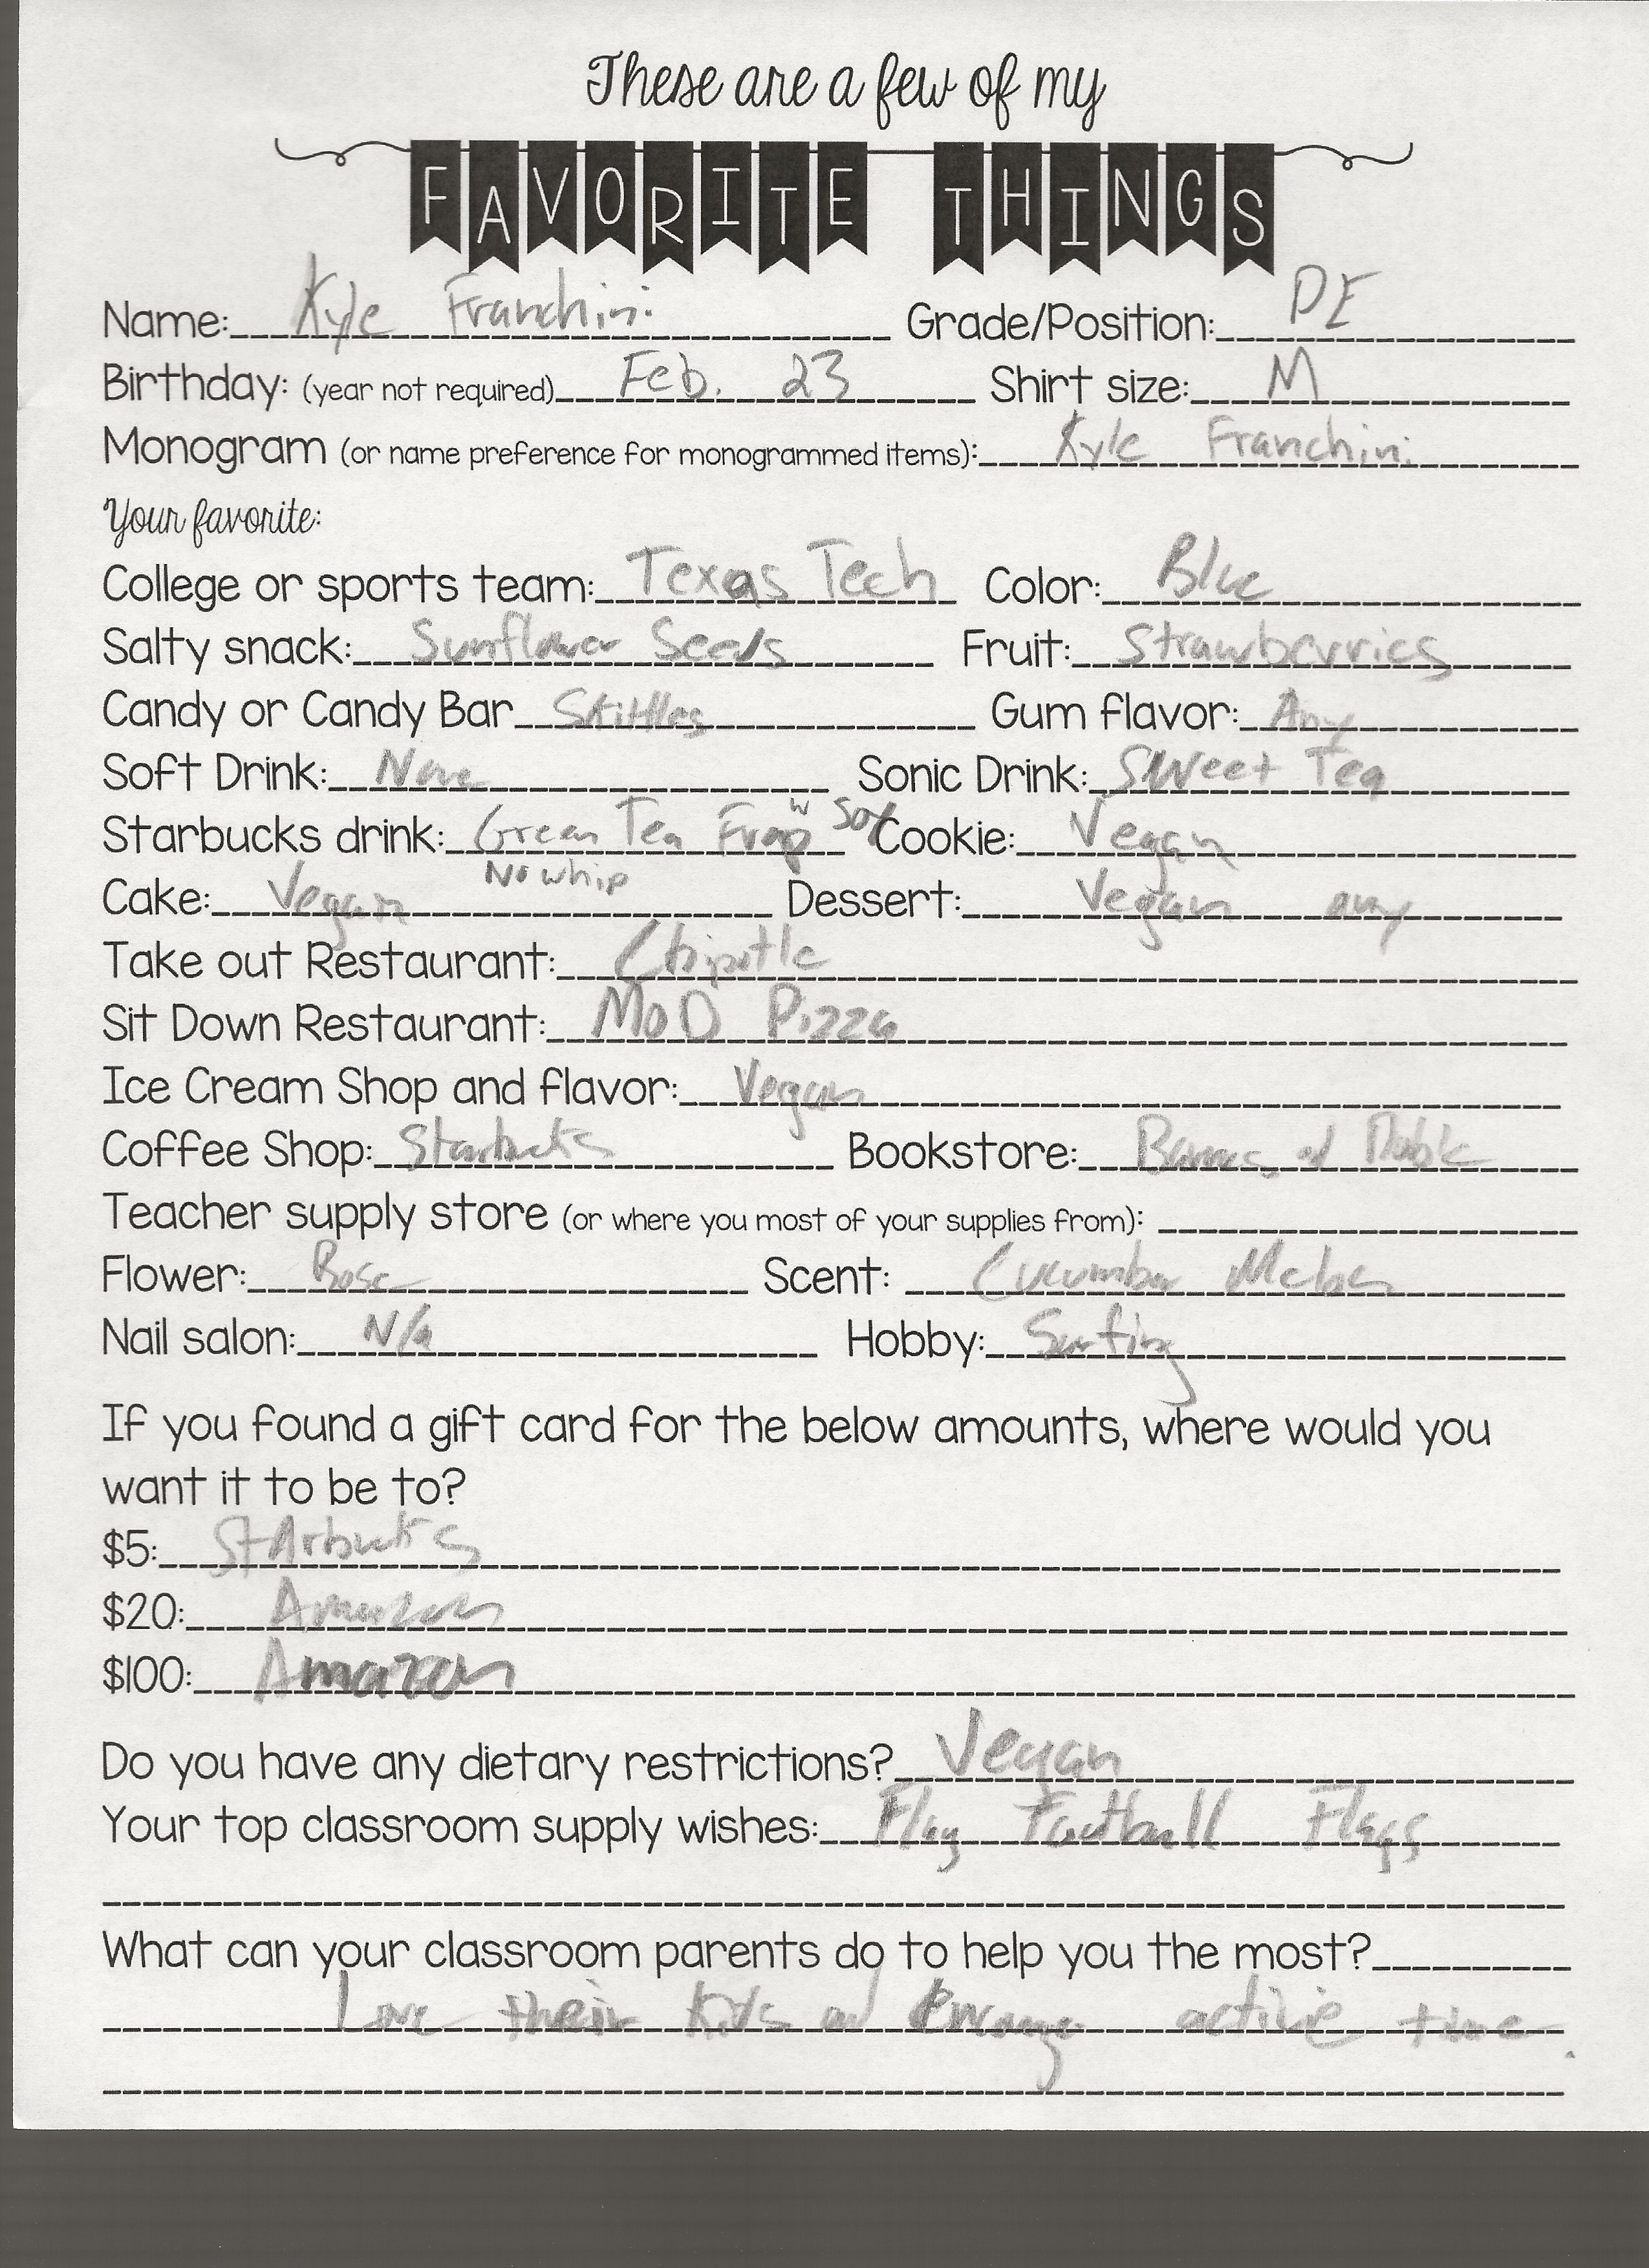 These are a few of my
FAVORITE THINGS
Name: Kyle Franchini Grade/Position: PE
Birthday: (year not required) Feb. 23 Shirt size: M
Monogram (or name preference for monogrammed items): Kyle Franchini
Your favorite:
College or sports team: Texas Tech Color: Blue
Salty snack: Sunflower Seeds Fruit: Strawberries
Candy or Candy Bar Skittles Gum flavor: Any
Soft Drink: None Sonic Drink: Sweet Tea
Starbucks drink: Green Tea Frap w soy Cookie: Vegan
No whip
Cake: Vegan Dessert: Vegan any
Take out Restaurant: Chipotle
Sit Down Restaurant: MOD Pizza
Ice Cream Shop and flavor: Vegan
Coffee Shop: Starbucks Bookstore: Barnes and Noble
Teacher supply store (or where you most of your supplies from):
Flower: Rose Scent: Cucumber Melon
Nail salon: N/a Hobby: Surfing
If you found a gift card for the below amounts, where would you
want it to be to?
$5: Starbucks
$20: Amazon
$100: Amazon
Do you have any dietary restrictions? Vegan
Your top classroom supply wishes: Flag Football Flags
What can your classroom parents do to help you the most?
Love their Kids and active time.